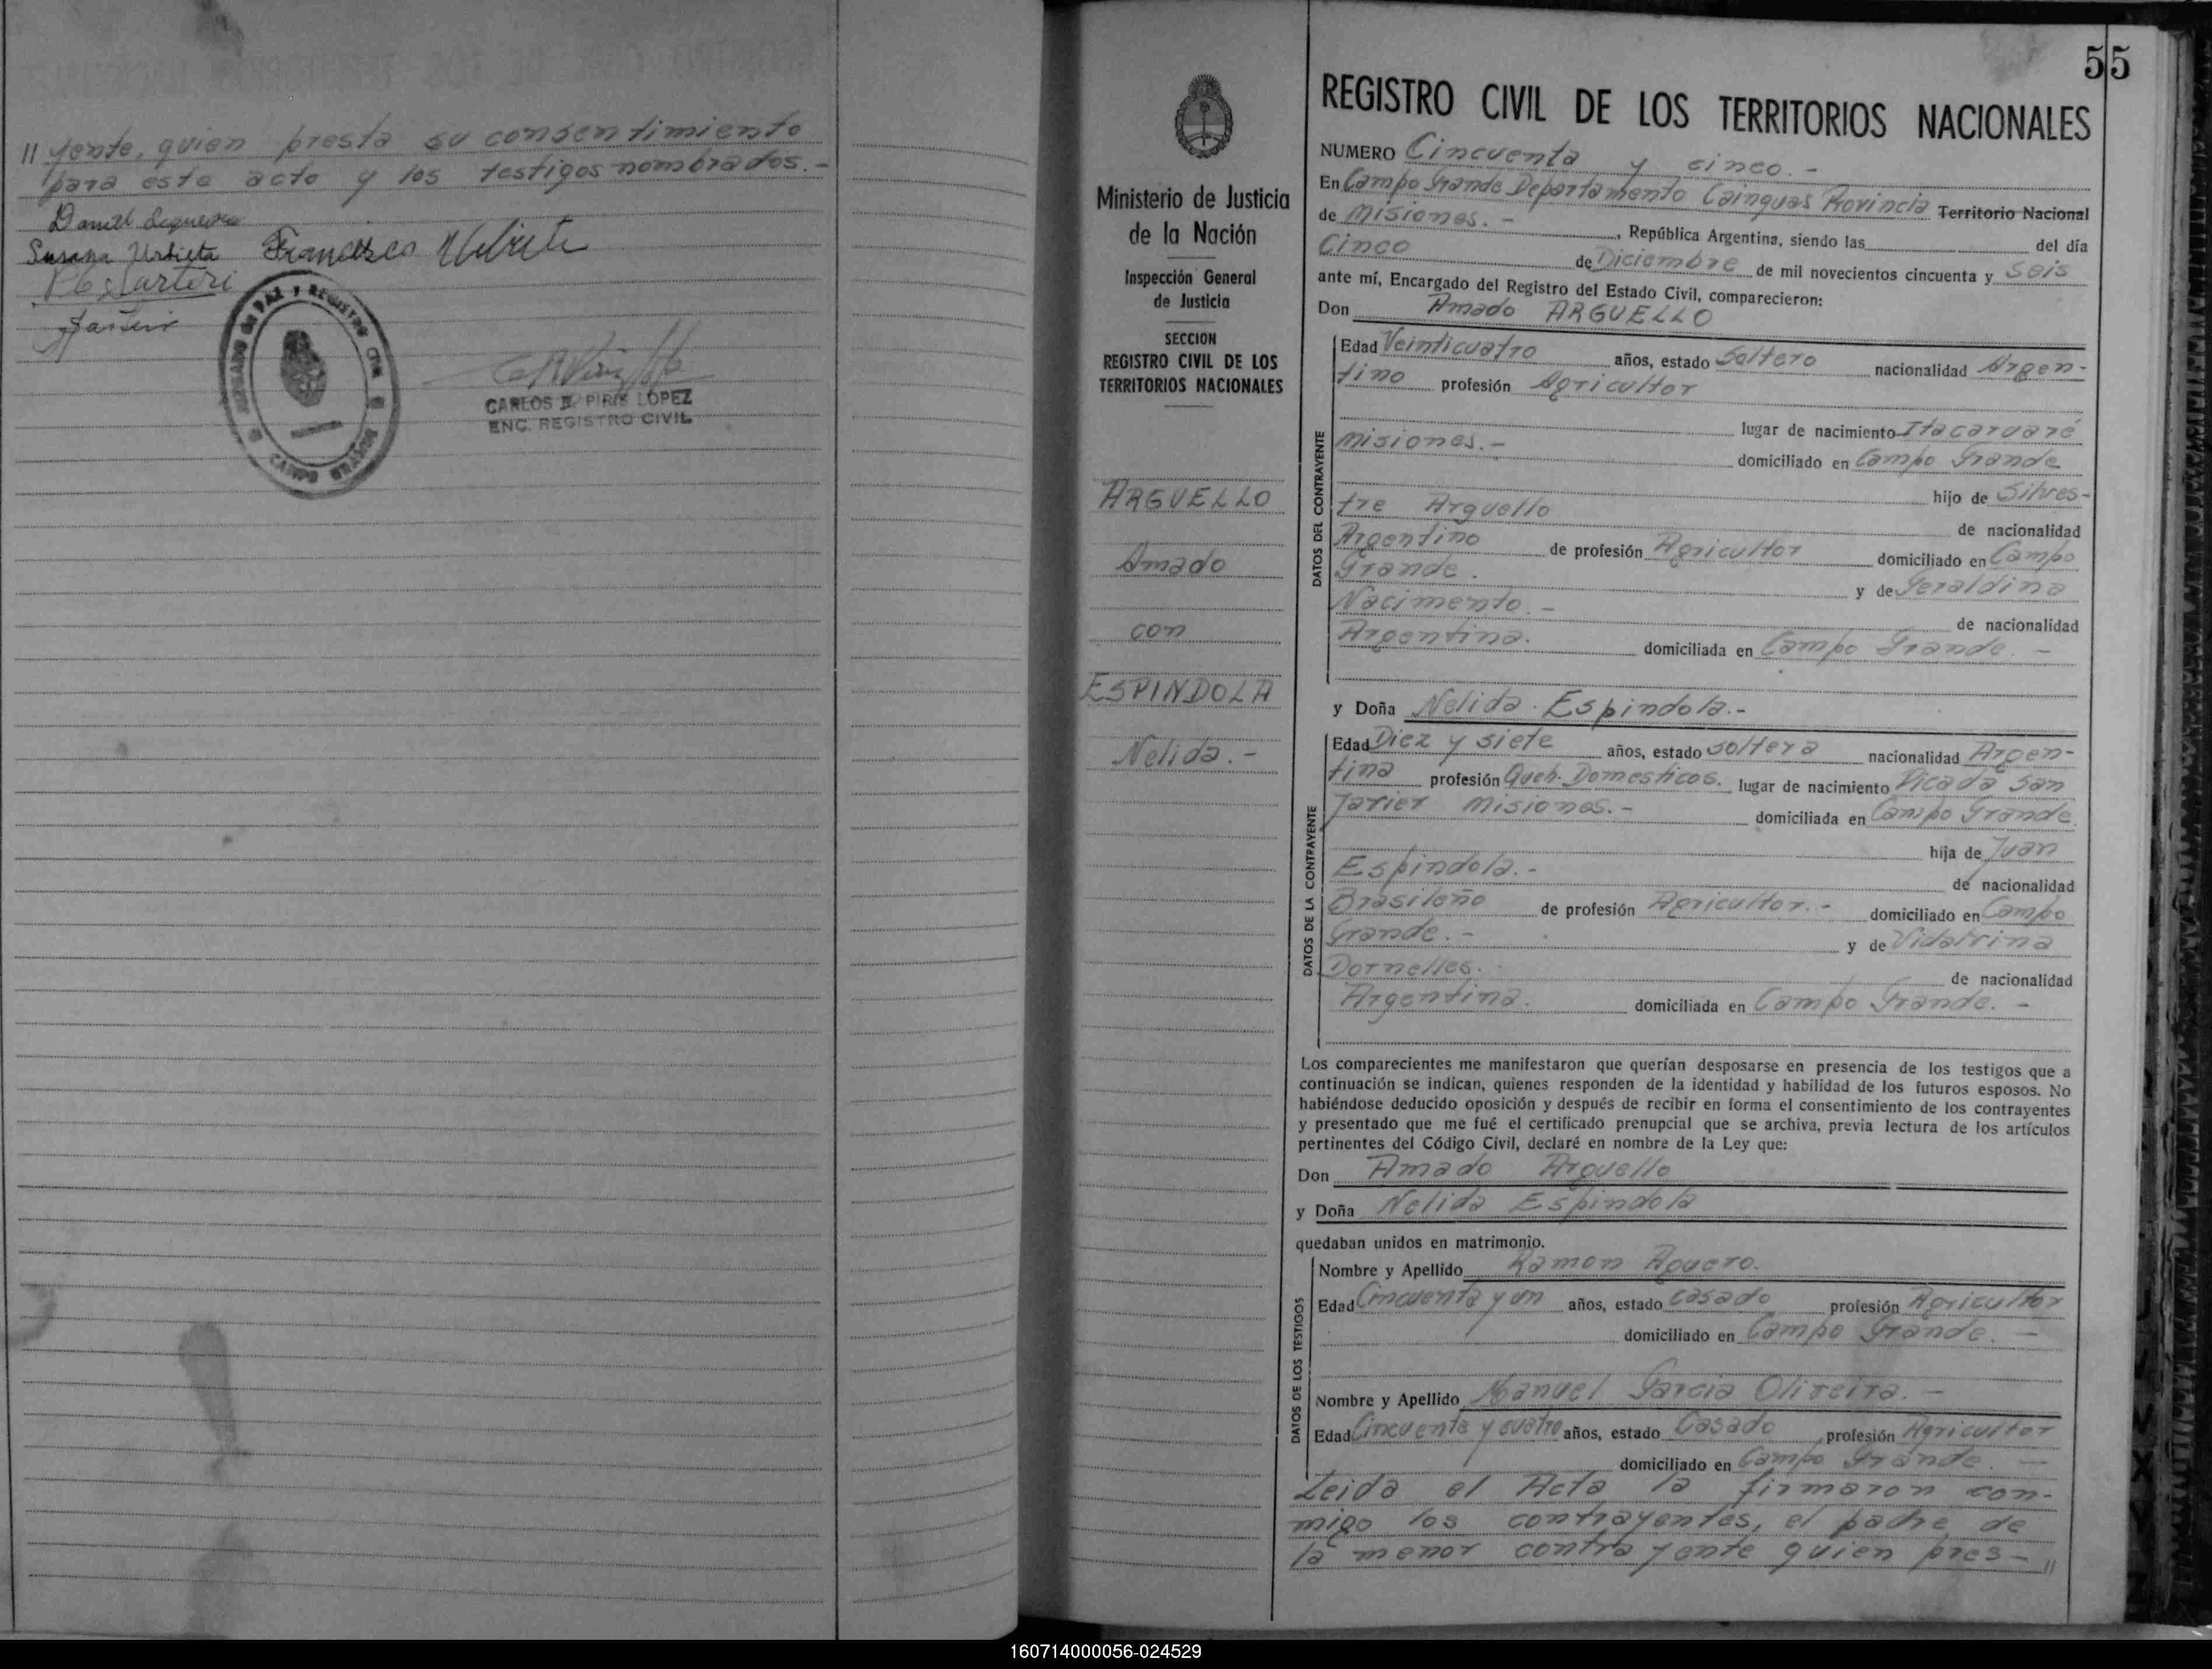 // yente, quien presta su consentimiento
para este acto y los testigos nombrados.-
Daniel Sequeira
Susana Urbieta Francisco Urbieta
Sarteri
JUZGADO DE PAZ Y REGISTRO CIVIL
CAMPO GRANDE
CARLOS PIRIS LOPEZ
ENC. REGISTRO CIVIL
Ministerio de Justicia
de la Nación
Inspección General
de Justicia
SECCION
REGISTRO CIVIL DE LOS
TERRITORIOS NACIONALES
ARGUELLO
Amado
con
ESPINDOLA
Nelida.-
55
REGISTRO CIVIL DE LOS TERRITORIOS NACIONALES
NUMERO Cincuenta y cinco.-
En Campo Grande Departamento Cainguas Provincia Territorio Nacional
de Misiones.- , República Argentina, siendo las del día
Cinco de Diciembre de mil novecientos cincuenta y seis
ante mí, Encargado del Registro del Estado Civil, comparecieron:
Don Amado ARGUELLO
DATOS DEL CONTRAYENTE
Edad Veinticuatro años, estado Soltero nacionalidad Argen-
tino profesión Agricultor
lugar de nacimiento Itacaruaré
Misiones.- domiciliado en Campo Grande
hijo de Silves-
tre Arguello de nacionalidad
Argentino de profesión Agricultor domiciliado en Campo
Grande. y de Geraldina
Nacimento.- de nacionalidad
Argentina. domiciliada en Campo Grande.-
y Doña Nelida Espindola.-
DATOS DE LA CONTRAYENTE
Edad Diez y siete años, estado soltera nacionalidad Argen-
tina profesión Queh. Domesticos. lugar de nacimiento Picada San
Javier Misiones.- domiciliada en Campo Grande.
hija de Juan
Espindola.- de nacionalidad
Brasileño de profesión Agricultor.- domiciliado en Campo
Grande.- y de
Dornelles. de nacionalidad
Argentina. domiciliada en Campo Grande.-
Los comparecientes me manifestaron que querían desposarse en presencia de los testigos que a
continuación se indican, quienes responden de la identidad y habilidad de los futuros esposos. No
habiéndose deducido oposición y después de recibir en forma el consentimiento de los contrayentes
y presentado que me fué el certificado prenupcial que se archiva, previa lectura de los artículos
pertinentes del Código Civil, declaré en nombre de la Ley que:
Don Amado Arguello
y Doña Nelida Espindola
quedaban unidos en matrimonio.
DATOS DE LOS TESTIGOS
Nombre y Apellido Ramon Aguero.
Edad Cincuenta y un años, estado casado profesión Agricultor
domiciliado en Campo Grande.-
Nombre y Apellido Manuel Garcia Oliveira.-
Edad Cincuenta y cuatro años, estado Casado profesión Agricultor
domiciliado en Campo Grande.-
Leida el Acta la firmaron con-
migo los contrayentes, el padre de
la menor contrayente quien pres- //
160714000056-024529